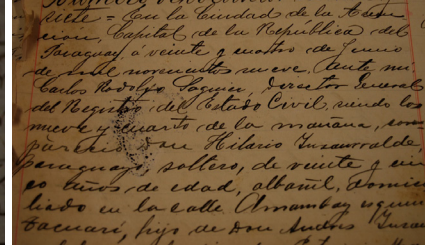 siete = En la Ciudad de la Asun
cion, Capital de la República del
Paraguay, á veinte y cuatro de Junio
de mil novecientos nueve, Ante mi
Carlos Rodolfo Saguier, Director General
del Registro del Estado Civil, siendo las
nueve y cuarto de la mañana, com-
pareció Don Hilario Insaurralde,
paraguayo, soltero, de veinte y cin
co años de edad, albañil, domici
liado en la calle Amambay esquina
Tacuarí, hijo de don Andrés Insau